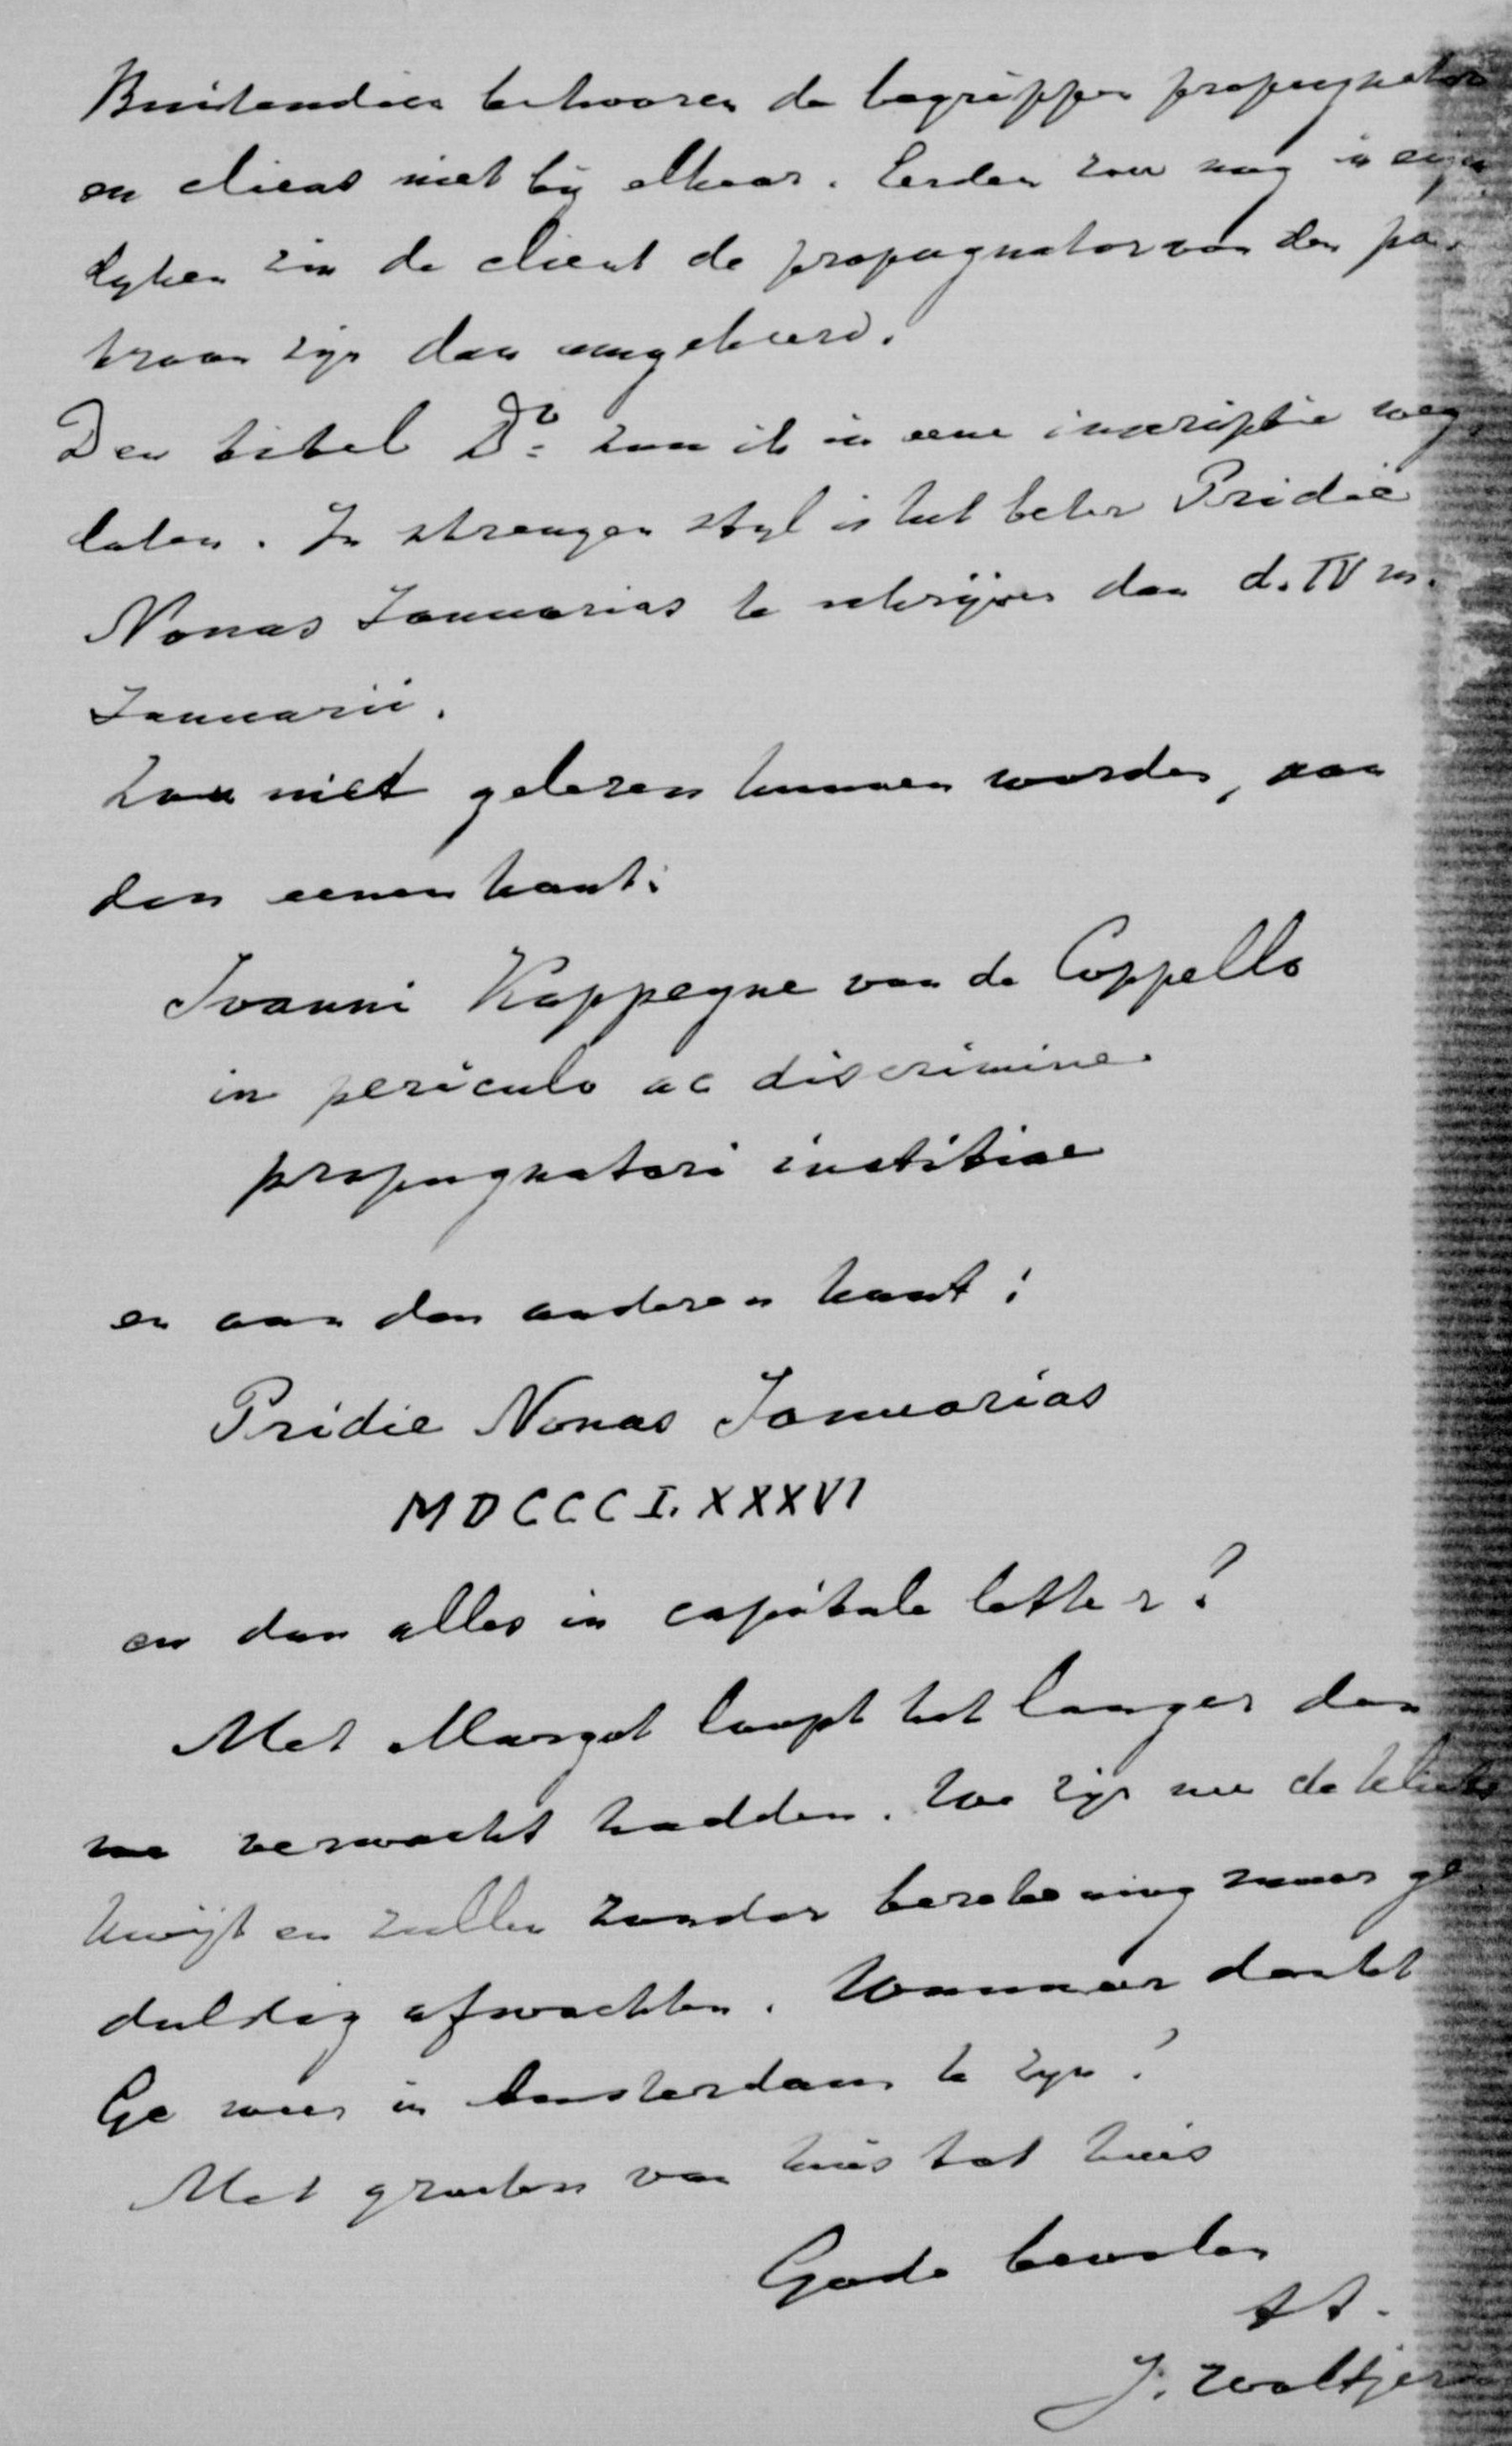 Buitendien behooren de begrippen propugnator
en cliens niet bij elkaar. Eerder zou nog in eigen
lyken zin de client de propugnator van den pa-
troon zijn dan omgekeerd.
Den titel Dr. zou ik in eene inscriptie weg
laten. In strengen styl is het beter Pridie
Nonas Januarias te schrijven dan d. IV m.
Januarii.
Zou niet gelezen kunnen worden, aan
den eenen kant:
Ioanni Kappeyne van de Coppello
in periculo ac discrimine
propugnatori iustitiae
en aan den anderen kant:
Pridie Nonas Januarias
MDCCCLXXXVI
en dan alles in capitale letter?
Met Margot loopt het langer dan
we verwacht hadden. We zijn nu de
kwijt en zullen zonder berekening maar ge
duldig afwachten. Wanneer denkt
Ge weer in Amsterdam te zijn?
Met groeten van huis tot huis
Gode bevolen
tt.
J. Woltjer